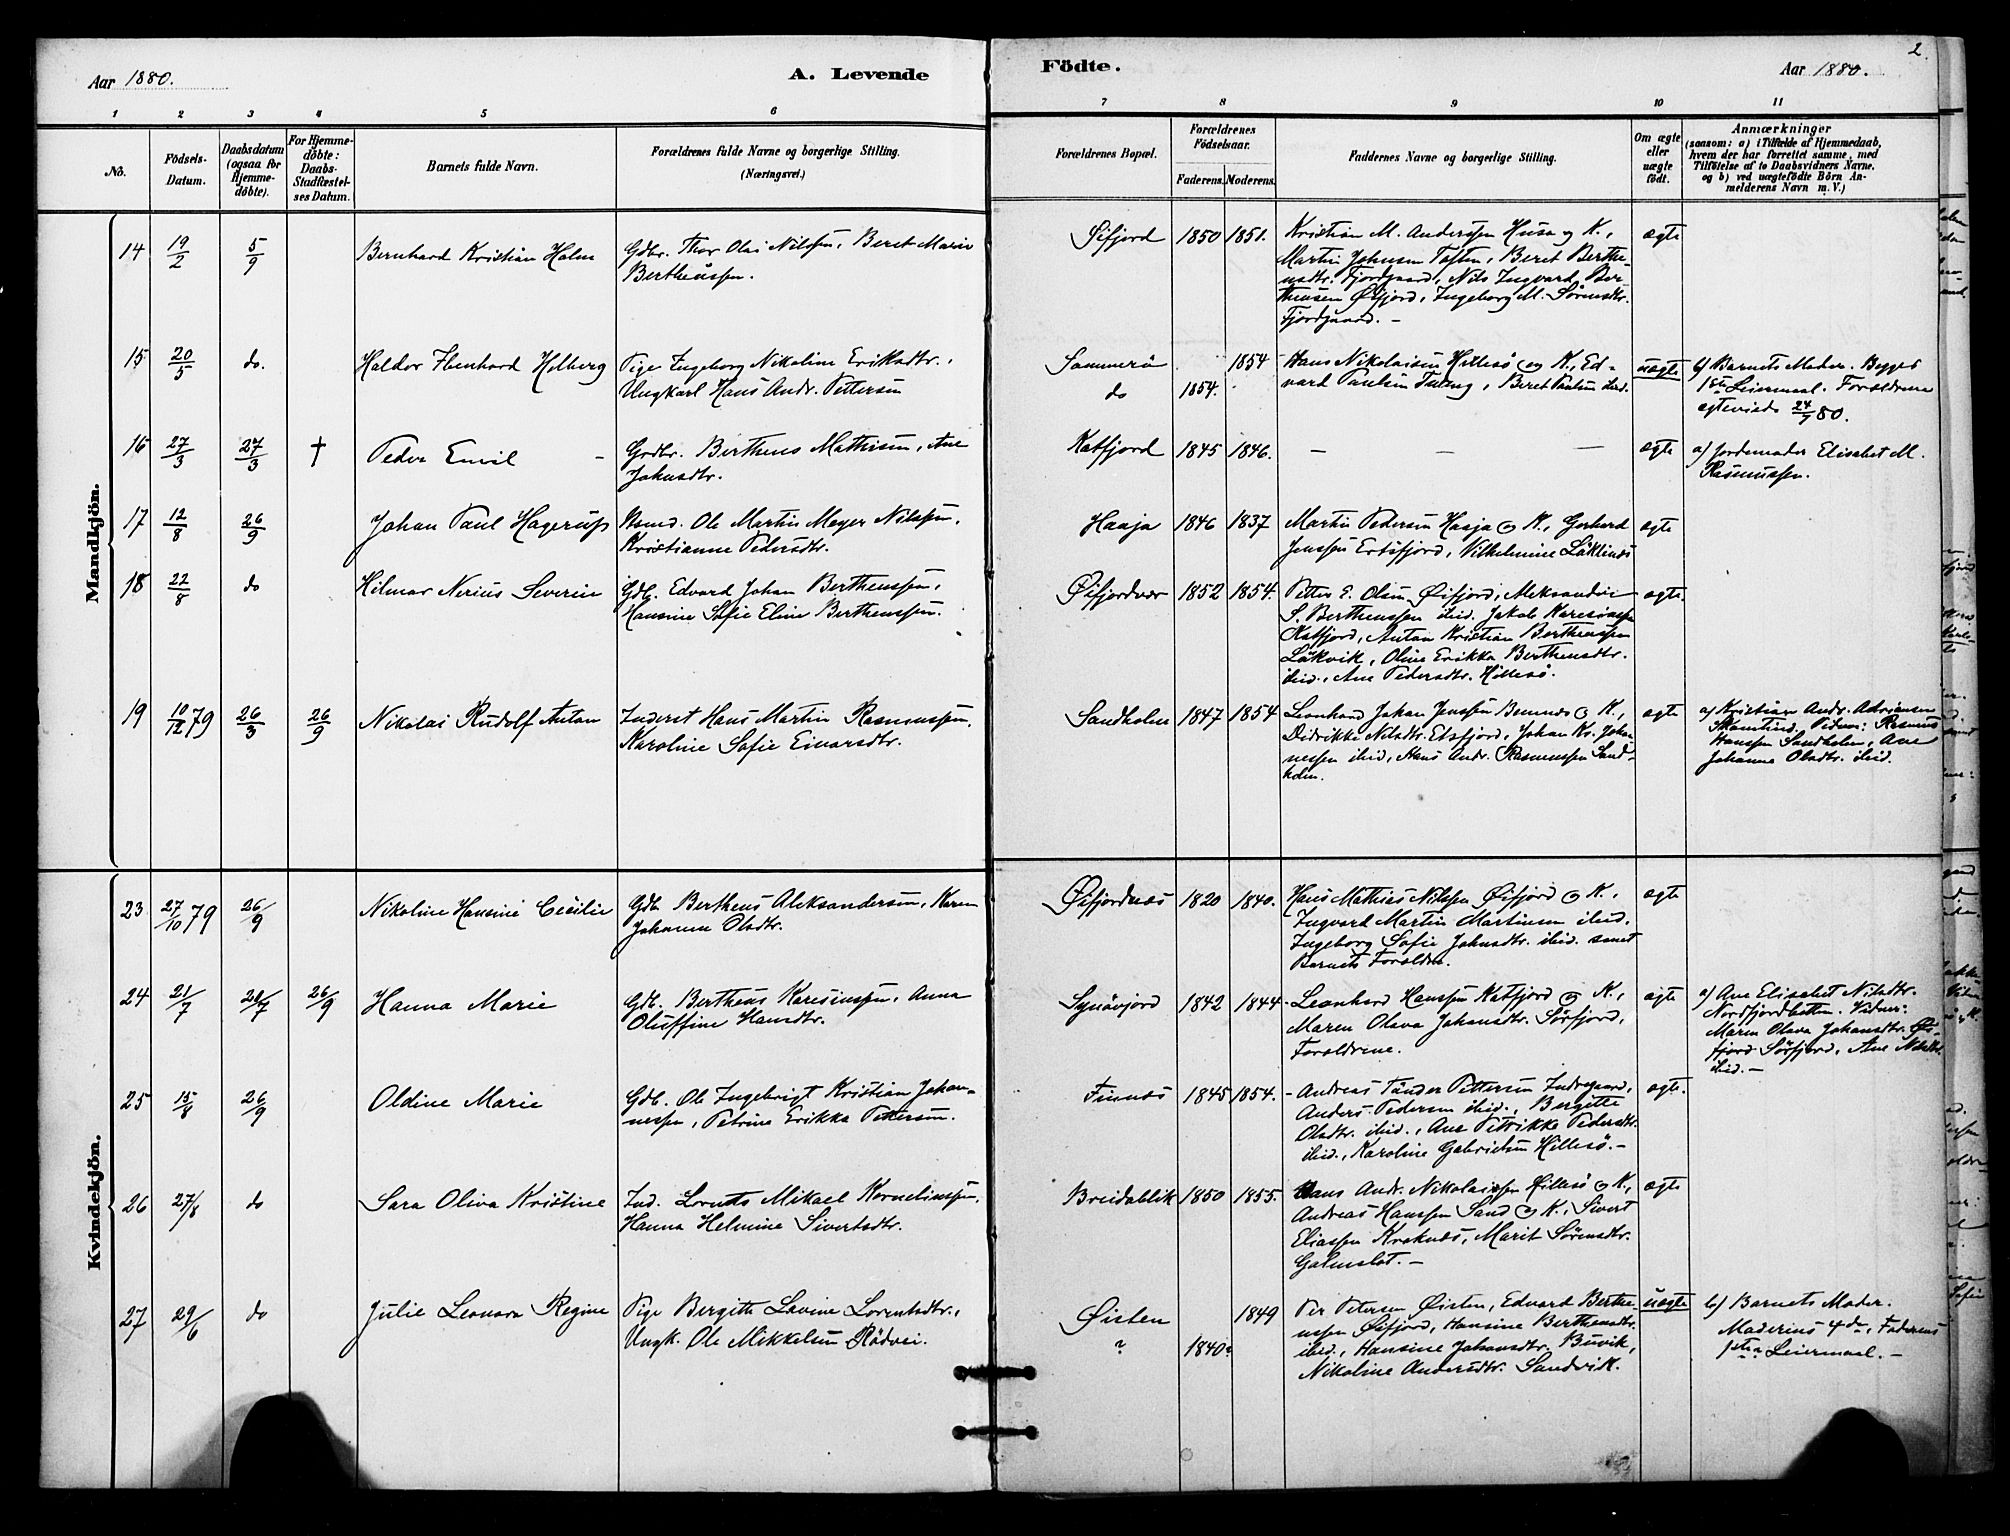 2
Aar 1880.
A. Levende
Födte.
Aar 1880.
1 2 3 4 5 6 7 8 9 10 11
No.
Födsels-
Datum.
Daabsdatum
(ogsaa for
Hjemme-
döbte).
For Hjemme-
döbte:
Daabs-
Stadfæstel-
ses Datum.
Barnets fulde Navn.
Forældrenes fulde Navne og borgerlige Stilling.
(Næringsvei.)
Forældrenes Bopæl.
Forældrenes
Födselsaar.
Faderens. Moderens.
Faddernes Navne og borgerlige Stilling.
Om ægte
eller
uægte
født.
Anmærkninger
(saasom: a) i Tilfælde af Hjemmedaab,
hvem der har forrettet samme, med
Tilföielse af to Daabsvidners Navne,
og b) ved uægtefödte Börn An-
melderens Navn m. V.)
Mandkjön.
14 19/2 5/9 Bernhard Kristian Holm
Gdbr. Thor Olai Nilssen, Beret Marie
Bertheussen.
Öifjord 1850 1851.
Kristian M. Anderssen Husø og K.,
Martin Johnsen Toften, Beret Berthe-
usdtr. Fjordgaard, Nils Ingvard Ber-
theusen Öifjord, Ingeborg M. Sörensdtr.
Fjordgaard. –
ægte
15 20/5 do. Haldor Edenhard Hilberg
Pige Ingeborg Nikoline Eriksdtr.,
Ungkarl Hans Andr. Pettersen
Sommerö 1854
do 1854.
Hans Nikolaisen Hillesö og K., Ed-
vard Paulsen Tussøy, Beret Paulsen ibid.
uægte
b) Barnets Moder. Begges
1ste Leiermaal. Forældrene
ægteviede 24/9 80.
16 27/3 27/3 † Peder Emil –
Grdbr. Bertheus Mathisen, Ane
Johnsdtr.
Katfjord 1845 1846.
– – –
ægte
a) Jordemoder Elisabet M.
Rasmussen.
17 12/8 26/9 Johan Paul Hagerup
Nsmd. Ole Martin Meyer Nilssen,
Kristianne Pedersdtr.
Haaja 1846 1837
Martin Pedersen Haaja og K., Gerhard
Jenssen Ersfjord, Vilhelmine
ægte
18 22/8 do Hilmar Nerius Severin
Gdb. Edvard Johan Bertheussen,
Hansine Sofie Eline Bertheussen.
Öifjordvær 1852 1854.
Petter E. Olsen Öifjord, Aleksander
S. Bertheussen ibid. Jakob Karesiussen
Katfjord, Anton Kristian Bertheussen
Låkvik, Oline Erikka Bertheusdtr.
ibid., Ane Pedersdtr. Hillesö.
ægte.
19 10/12 79 26/3 26/9 Nikolai Rudolf Antan
Inderst Hans Martin Rasmussen,
Karoline Sofie Einarsdtr.
Sandholm 1847 1854
Leonhard Johan Jenssen Buvnes og K.,
Didrikke Nilsdtr. Edsfjord, Johan Kr. Johan-
nessen ibid, Hans Andr. Rasmussen Sand-
holm.
ægte
a) Kristian Andr. Adriansen
Skamtind. Vidner: Rasmus
Hanssen Sandholm, Ane
Johanna Olsdtr. ibid.
Kvindekjön.
23 27/10 79 26/9 Nikoline Hansine Cecilie
Gdb. Bertheus Aleksandersen, Karen
Johanna Olsdtr.
Öifjordnæs 1820 1840.
Hans Mathias Nilssen Öifjord og K.,
Ingvard Martin Martinsen ibid.
Ingeborg Sofie Johnsdtr. ibid. samt
Barnets Forældre.
ægte
24 21/7 28/7 26/9 Hanna Marie
Gdb. Bertheus Karesiussen, Anna
Oluffine Hansdtr.
1842 1844
– Leonhard Hanssen Katfjord og K.,
Maren Olava Johansdtr. Sörfjord,
Forældrene.
ægte
a) Ane Elisabet Nilsdtr.
Nordfjordbotten. Vidner:
Maren Olava Johansdtr. Öi-
fjord Sörfjord, Ane Nilsdtr.
ibid. –
25 15/8 26/9 Oldine Marie
Gdb. Ole Ingebrigt Kristian Johan-
nessen, Petrine Erikka Pettersen.
Finnæs 1845 1854.
– Andreas Tönder Pettersen Indregaard,
Anders Pedersen ibid., Bergitte
Olsdtr. ibid., Ane Petrikke Pedersdtr.
ibid., Karoline Gabrielsen Hillesö. –
ægte.
26 27/8 do Sara Oliva Kristine
Ind. Lornts Mikael Korneliussen,
Hanna Helmine Sivertsdtr.
Breidablik 1850 1855.
Hans Andr. Nikolaissen Hillesö og K.,
Andreas Hanssen Sand og K., Sivert
Eliassen Kraknæs, Marit Sörensdtr.
–
ægte
27 29/6 do Julie Leonora Regine
Pige Bergith Lovine Lorentsdtr.,
Ungk. Ole Mikkelsen Rödvei.
Öisten 1849
? 1840?
Per Petersen Öisten, Edvard Berthe-
ussen Öifjord, Hansine Bertheusdtr.
ibid., Hansine Johansdtr. Buvik,
Nikoline Andersdtr. Sandvik.
uægte
b) Barnets Moder.
Moderens 4de, Faderens
1ste Leiermaal. –